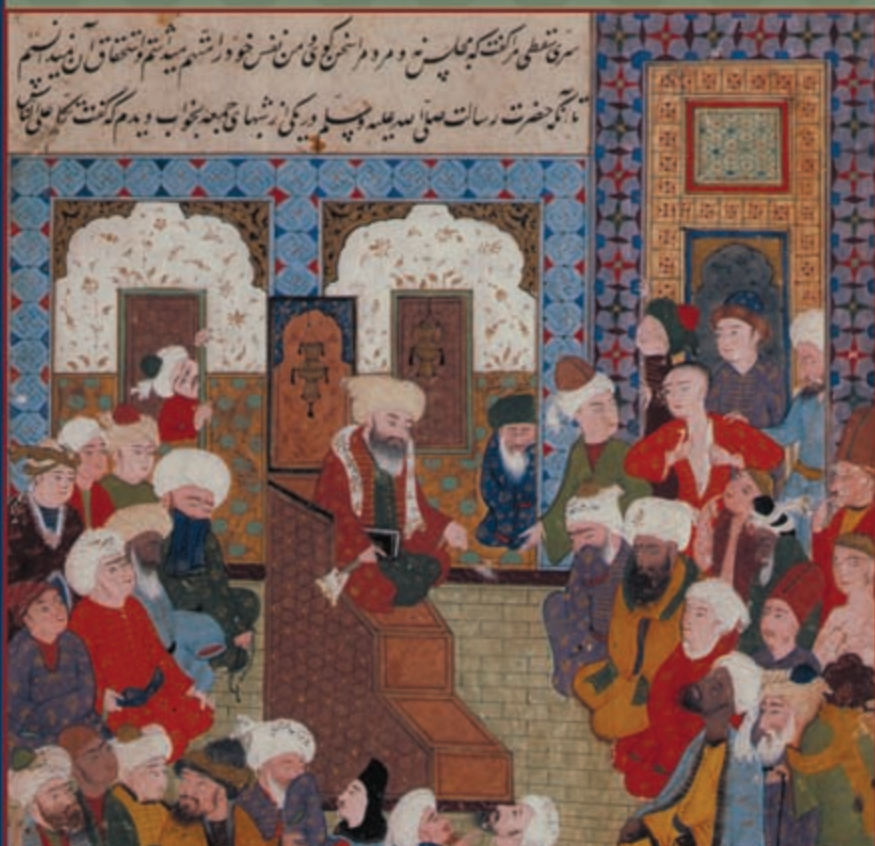 سری سقطی مرا گفت که مجلس نه و مردم را سخن گوی و من نفس خود را متهم میداشتم و استحقاق آن نمیدانستم
تا آنکه حضرت رسالت صلی الله علیه وسلم در یکی از شبهای جمعه بخواب دیدم که گفت تکلم علی الناس